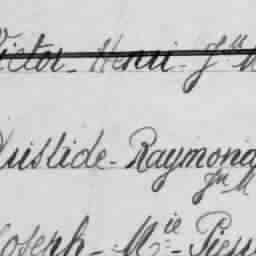 Victor - Henri - J^n M
Aristide - Raymond
J^n M
Joseph - M^ie - Pier